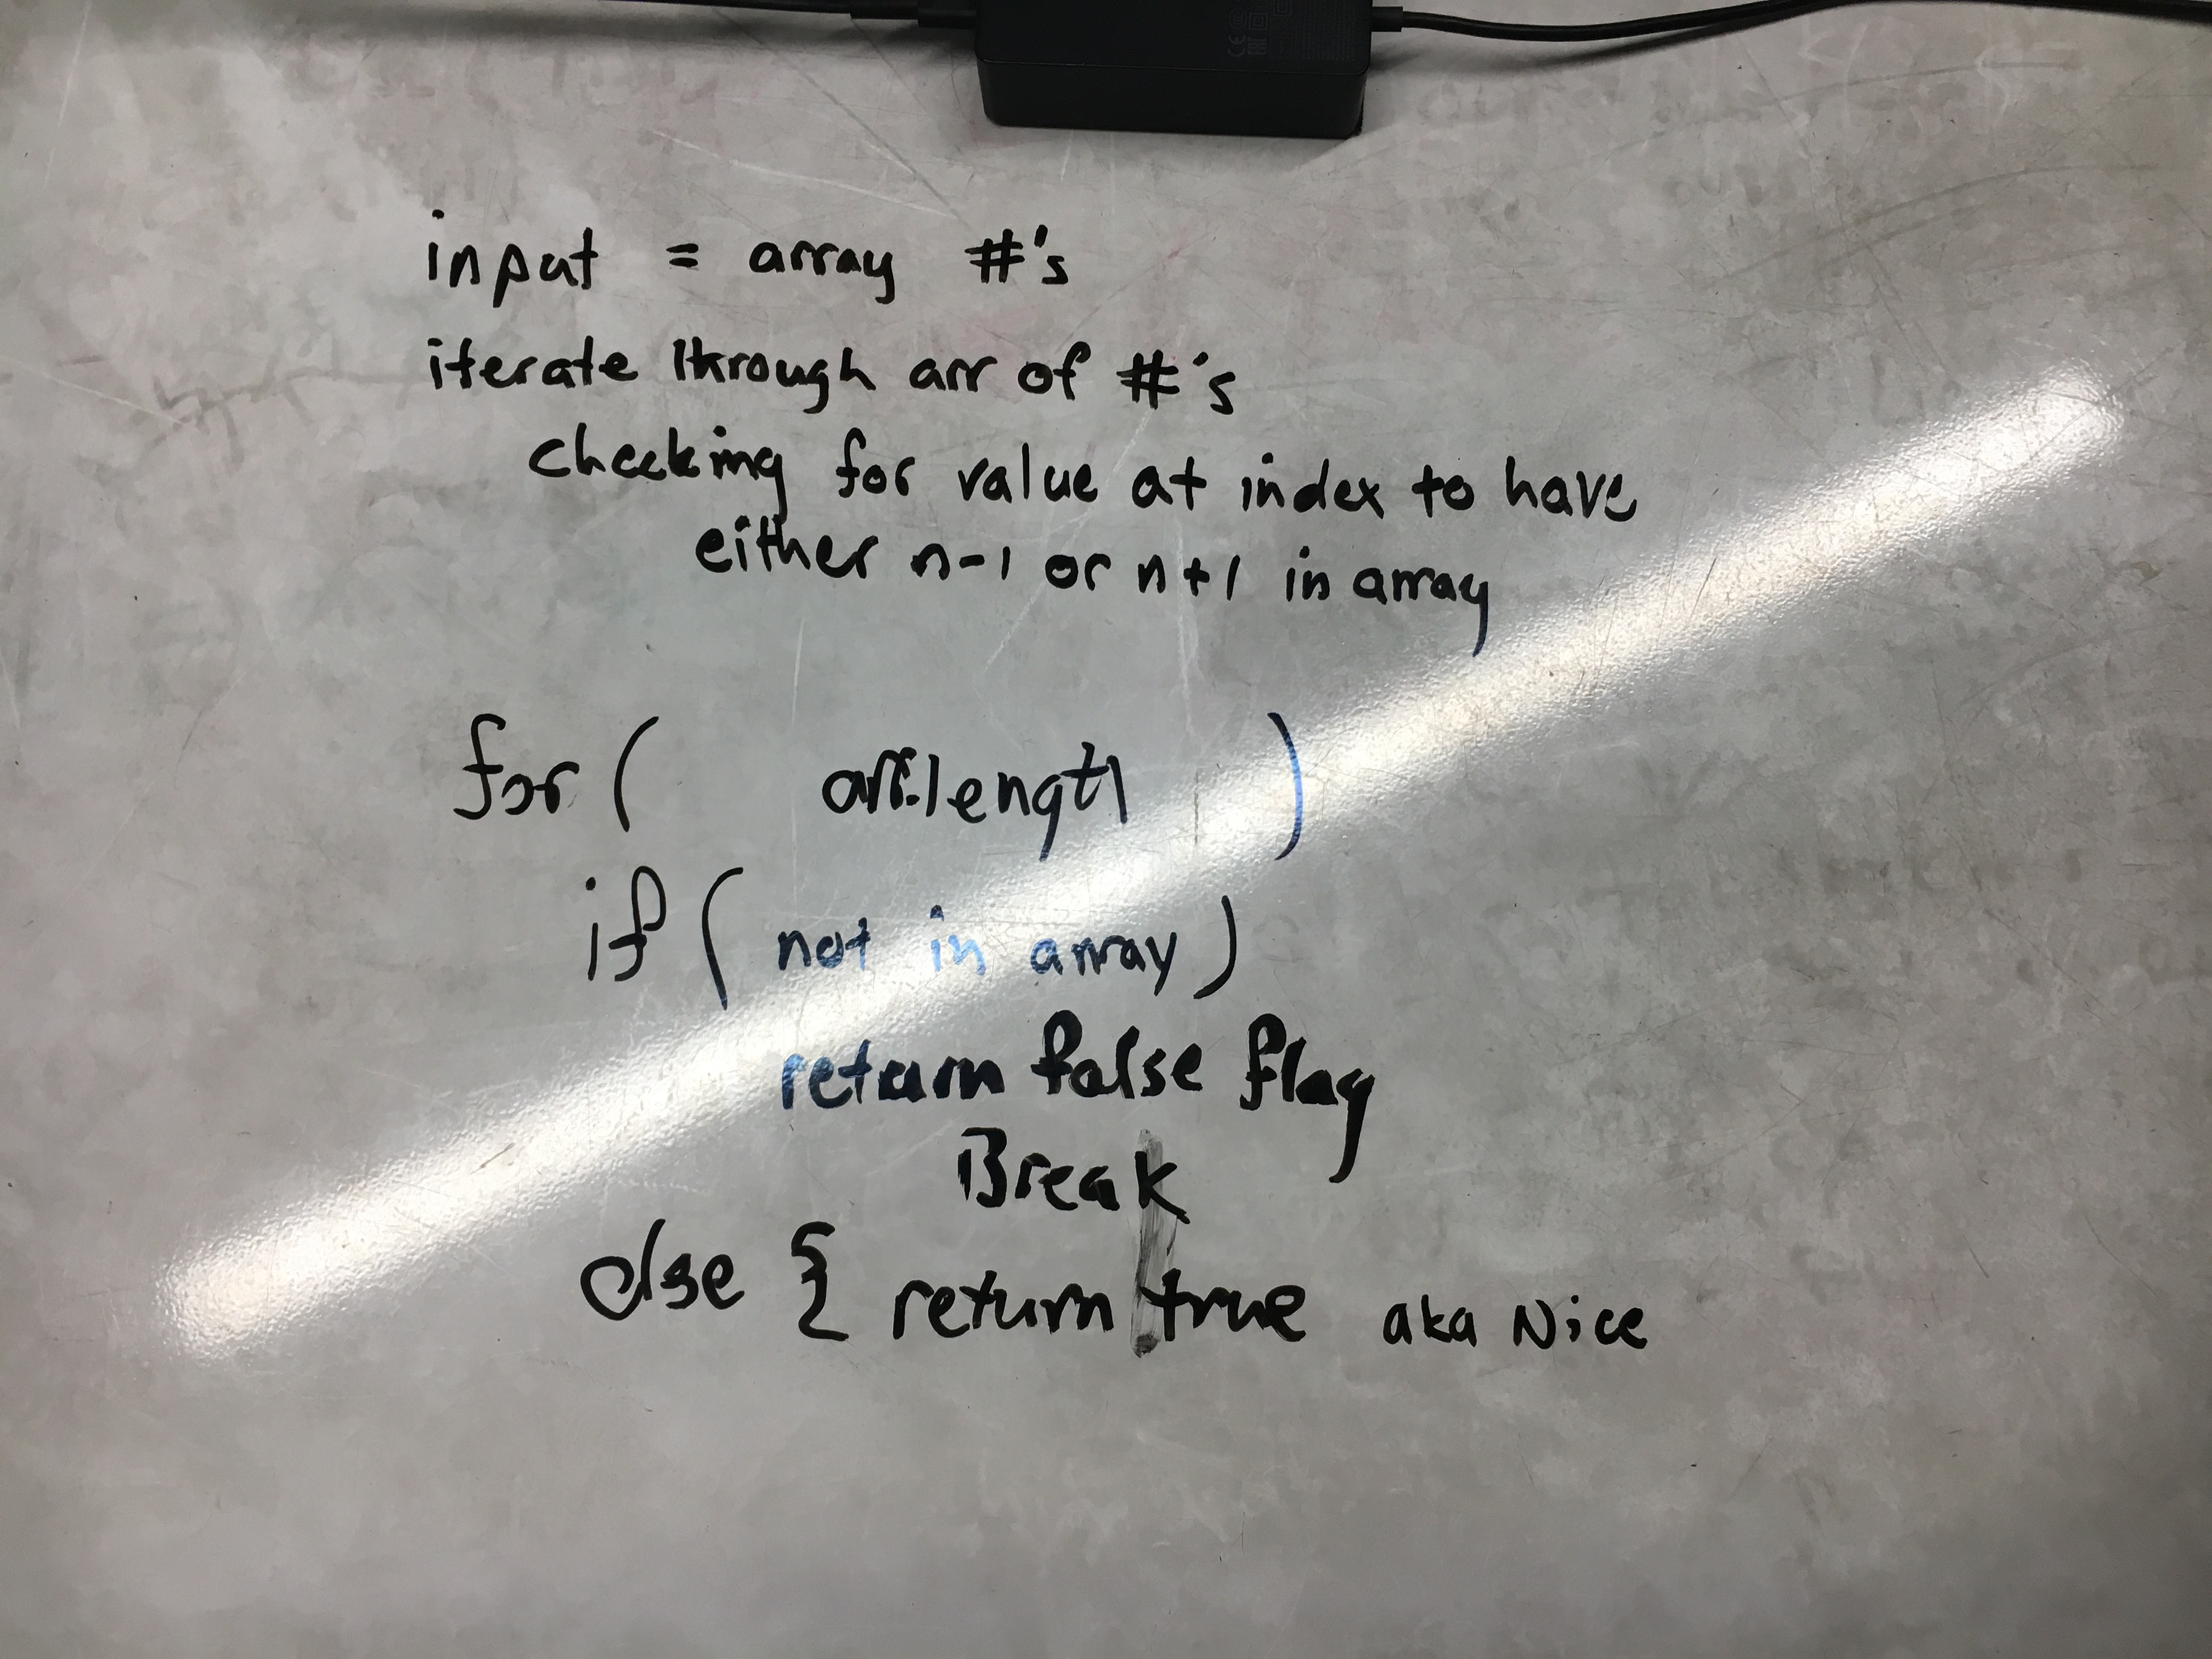 input = array #'s
iterate through arr of #'s
checking for value at index to have
either n-1 or n+1 in array
for ( arr.length )
if ( not in array )
return false flag
Break
else { return true aka Nice